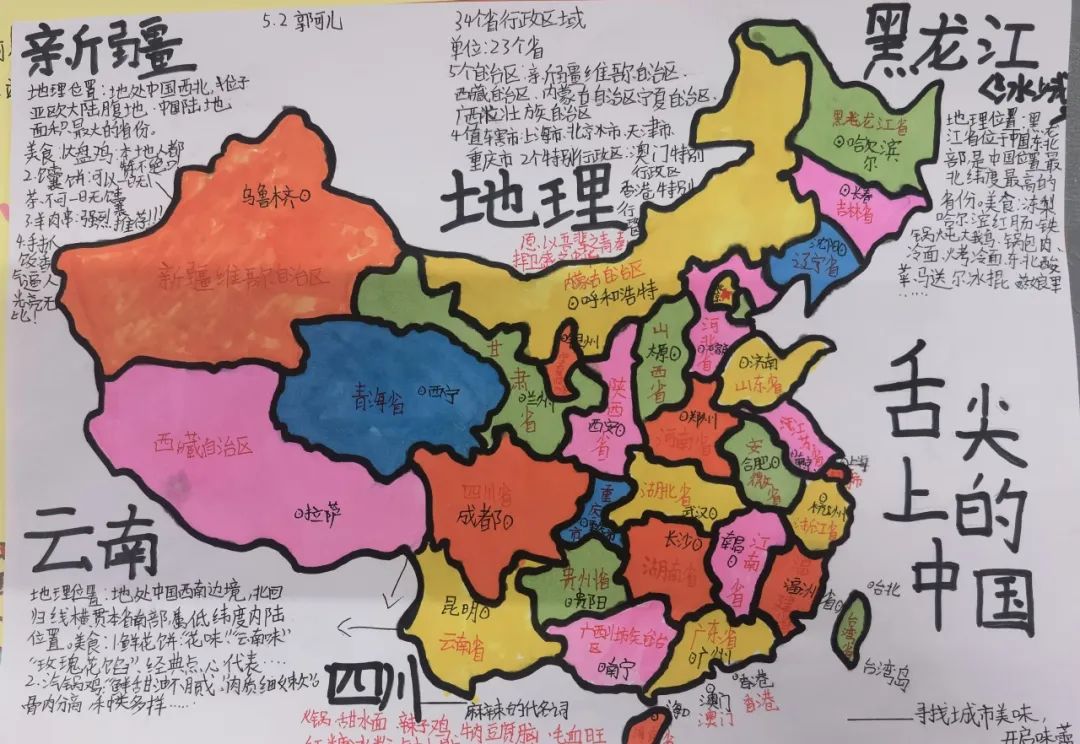 亲斤疆
5.2 郭可儿
34个省行政区域
单位:23个省
5个自治区:亲斤疆维吾尔自治区、
西藏自治区、内蒙古自治区宁夏自治区、
广西壮族自治区
4直辖市:上海市、北京市、天津市、
重庆市 2个特别行政区:澳门特别
行政区
香港特别
行
黑龙江
地理位置:地处中国西北,位于
亚欧大陆腹地.中国陆地
面积最大的省份。
美食:大盘鸡:本地人都
2.馕饼:可以一日无
茶,不可一日无馕
3.羊肉串:强烈推荐!!!
4.手抓
比!
地理位置:黑
江省位于中国东北
部,是中国位置最
北纬度最高的
省份。美食:冻梨
哈尔滨红肠、铁
锅炖大鹅、锅包肉、
冷面、烤冷面、东北酸
菜、马迭尔冰棍
……
地理
愿以吾辈之青春
黑龙江省
哈尔滨
长春
吉林省
沈阳
辽宁省
乌鲁木齐
新疆维吾尔自治区
内蒙古自治区
呼和浩特
甘肃省
兰州
青海省
西宁
西藏自治区
拉萨
陕西省
西安
山西省
太原
河北省
济南
山东省
郑州
河南省
江苏省
安徽省
合肥
上海市
杭州
浙江省
四川省
成都
重庆市
湖北省
武汉
长沙
湖南省
江南省
南昌
贵州省
贵阳
昆明
云南省
广西壮族自治区
南宁
广东省
广州
台北
台湾省
台湾岛
香港
香港
澳门
澳门
海口
舌尖
上的
中国
云南
地理位置:地处中国西南边境,北回
归线横贯本省南部属低纬度内陆
位置。美食:1鲜花饼:“花味”“云南味”
“玫瑰花馅”,经典点心代表……
2.汽锅鸡:“鲜甜油不腻,肉质细嫩软”
骨肉分离 种类多样……
四川
——麻辣的代名词
火锅 甜水面 辣子鸡 牛肉豆腐脑、毛血旺
———寻找城市美味,
开启味蕾